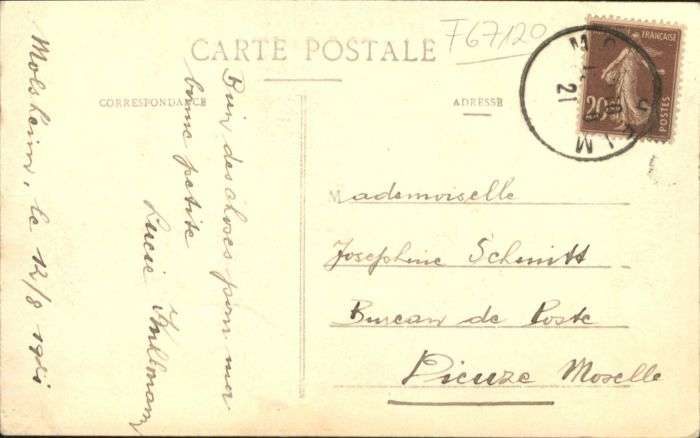 F67120
CARTE POSTALE
CORRESPONDANCE
ADRESSE
FRANÇAISE
20
POSTES
21
Molsheim, le 12/8 1921
Bien des choses pour ma
bonne petite
Lucie
Mademoiselle
Josephine Schmitt
Bureau de Poste
Dieuze Moselle